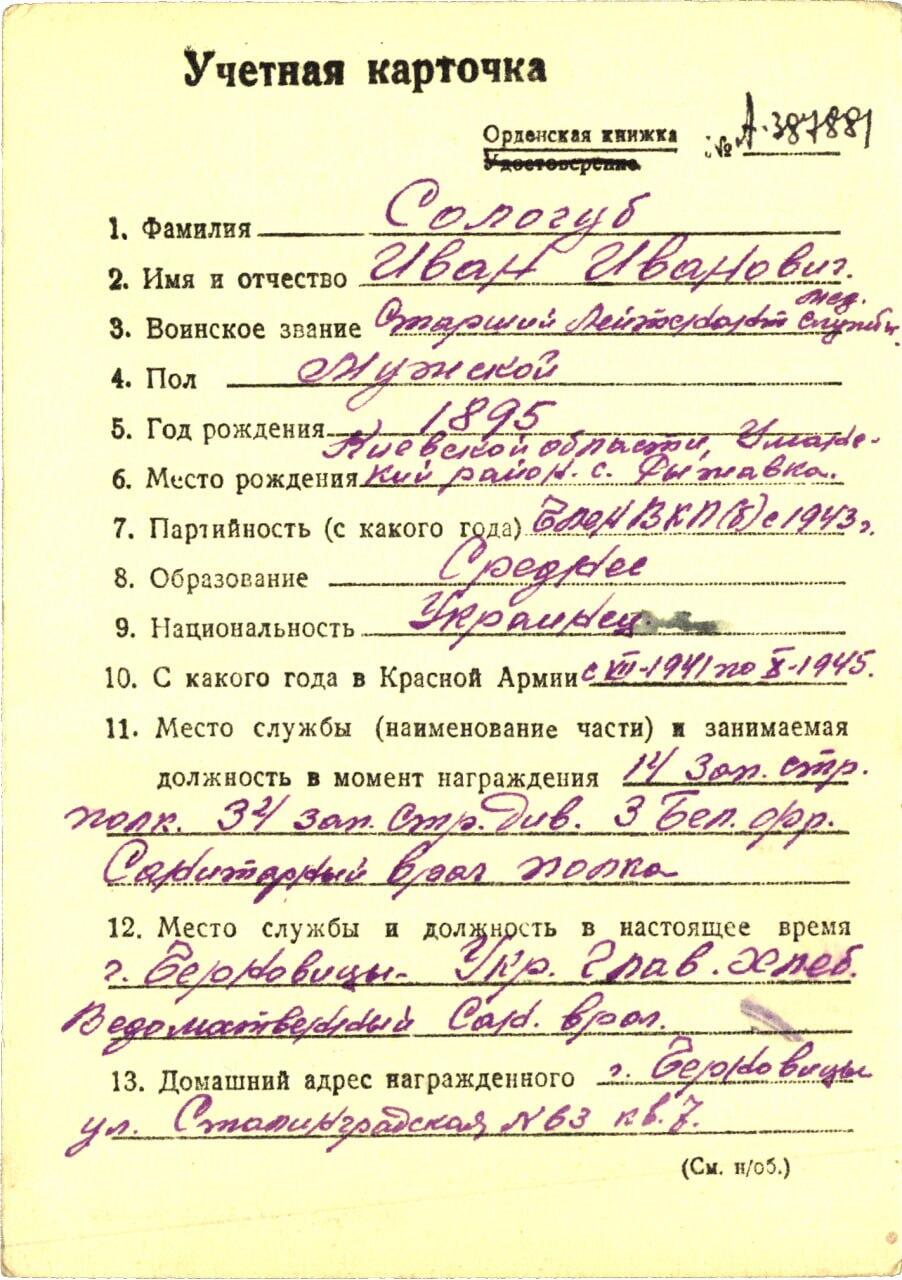 Учетная карточка
Орденская книжка № А-387881
Удостоверение
1. Фамилия Сологуб
2. Имя и отчество Иван Иванович.
3. Воинское звание Старший Лейтенант мед. службы.
4. Пол Мужской
5. Год рождения 1895
Киевской области, Уманс-
6. Место рождения кий район. с. Рыжавка.
7. Партийность (с какого года) Член ВКП(б) с 1943 г.
8. Образование Среднее
9. Национальность Украинец.
10. С какого года в Красной Армии с VIII-1941 по X-1945.
11. Место службы (наименование части) и занимаемая
должность в момент награждения 14 зап. стр.
полк. 34 зап. стр. див. 3 Бел. фр.
Санитарный врач полка
12. Место службы и должность в настоящее время
г. Черновицы- Укр. Глав. хлеб.
Ведомственный Сан. врач.
13. Домашний адрес награжденного г. Черновицы
ул. Сталинградская N 63 кв. 7.
(См. н/об.)